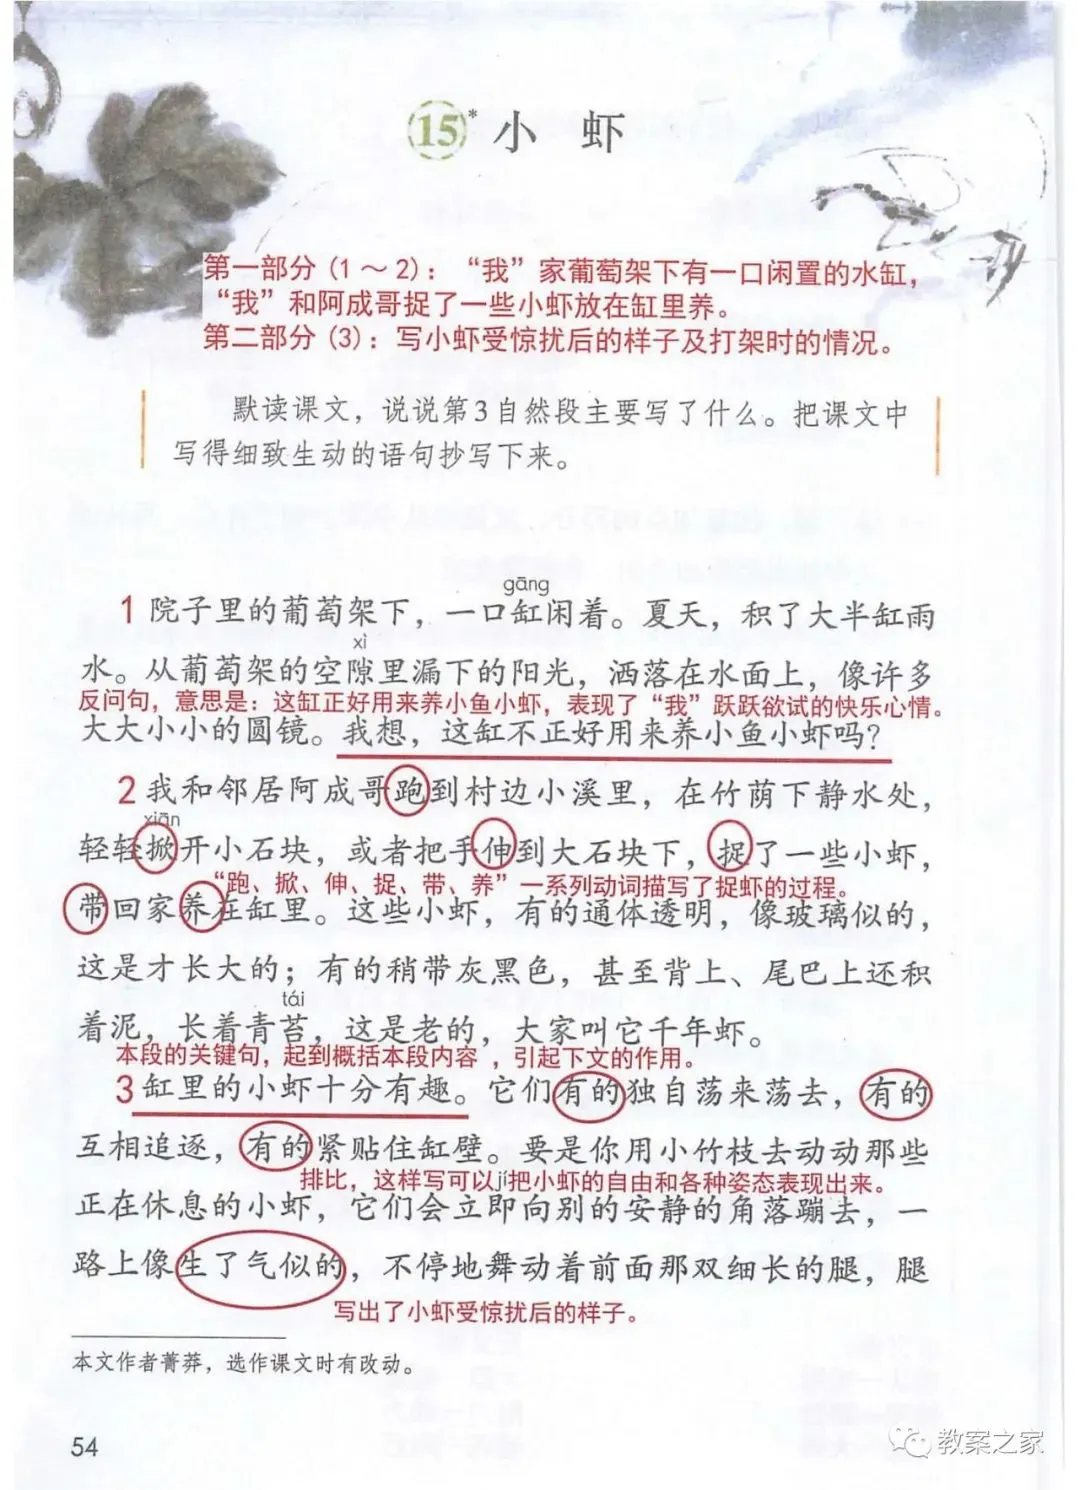 15* 小 虾
第一部分（1～2）：“我”家葡萄架下有一口闲置的水缸，
“我”和阿成哥捉了一些小虾放在缸里养。
第二部分（3）：写小虾受惊扰后的样子及打架时的情况。
默读课文，说说第3自然段主要写了什么。把课文中
写得细致生动的语句抄写下来。
gāng
1 院子里的葡萄架下，一口缸闲着。夏天，积了大半缸雨
xì
水。从葡萄架的空隙里漏下的阳光，洒落在水面上，像许多
反问句，意思是：这缸正好用来养小鱼小虾，表现了“我”跃跃欲试的快乐心情。
大大小小的圆镜。我想，这缸不正好用来养小鱼小虾吗？
2 我和邻居阿成哥跑到村边小溪里，在竹荫下静水处，
xiān
轻轻掀开小石块，或者把手伸到大石块下，捉了一些小虾，
“跑、掀、伸、捉、带、养”一系列动词描写了捉虾的过程。
带回家养在缸里。这些小虾，有的通体透明，像玻璃似的，
这是才长大的；有的稍带灰黑色，甚至背上、尾巴上还积
tái
着泥，长着青苔，这是老的，大家叫它千年虾。
本段的关键句，起到概括本段内容，引起下文的作用。
3 缸里的小虾十分有趣。它们有的独自荡来荡去，有的
互相追逐，有的紧贴住缸壁。要是你用小竹枝去动动那些
排比，这样写可以jí把小虾的自由和各种姿态表现出来。
正在休息的小虾，它们会立即向别的安静的角落蹦去，一
路上像生了气似的，不停地舞动着前面那双细长的腿，腿
写出了小虾受惊扰后的样子。
本文作者菁莽，选作课文时有改动。
54
教案之家